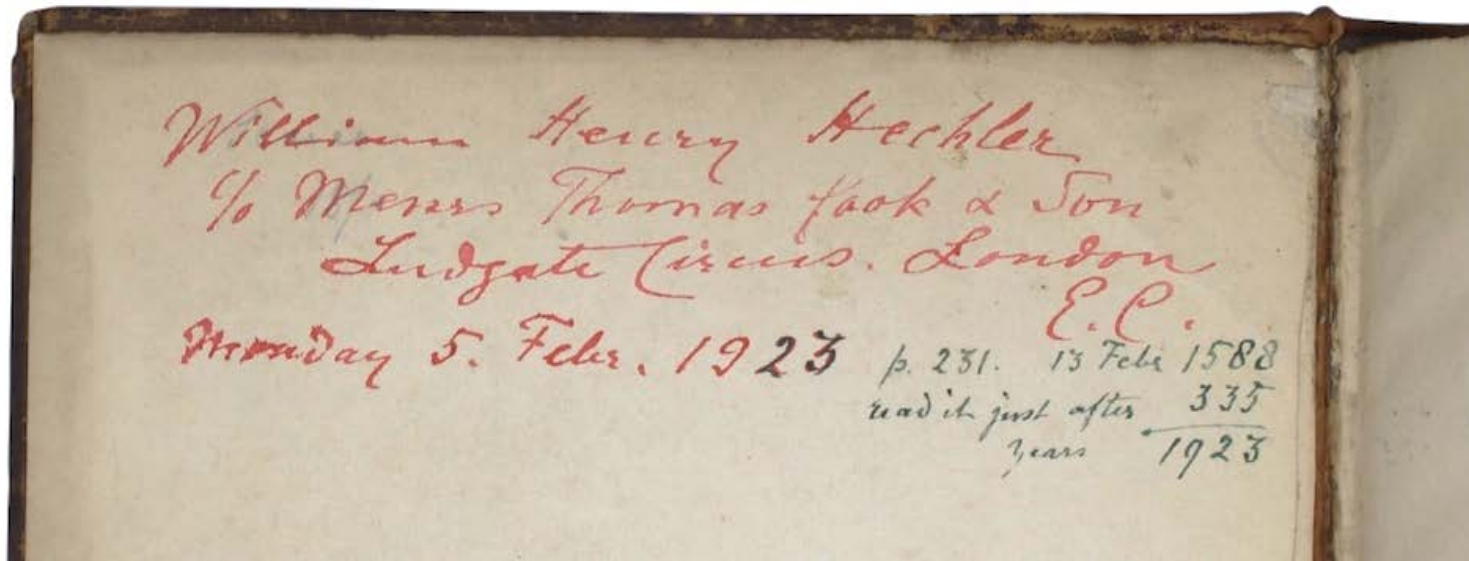 William Henry Hechler
c/o Messrs Thomas Cook & Son
Ludgate Circus. London
E. C.
Monday 5. Febr. 1923
p. 231. 13 Febr 1588
read it just after 335
years 1923